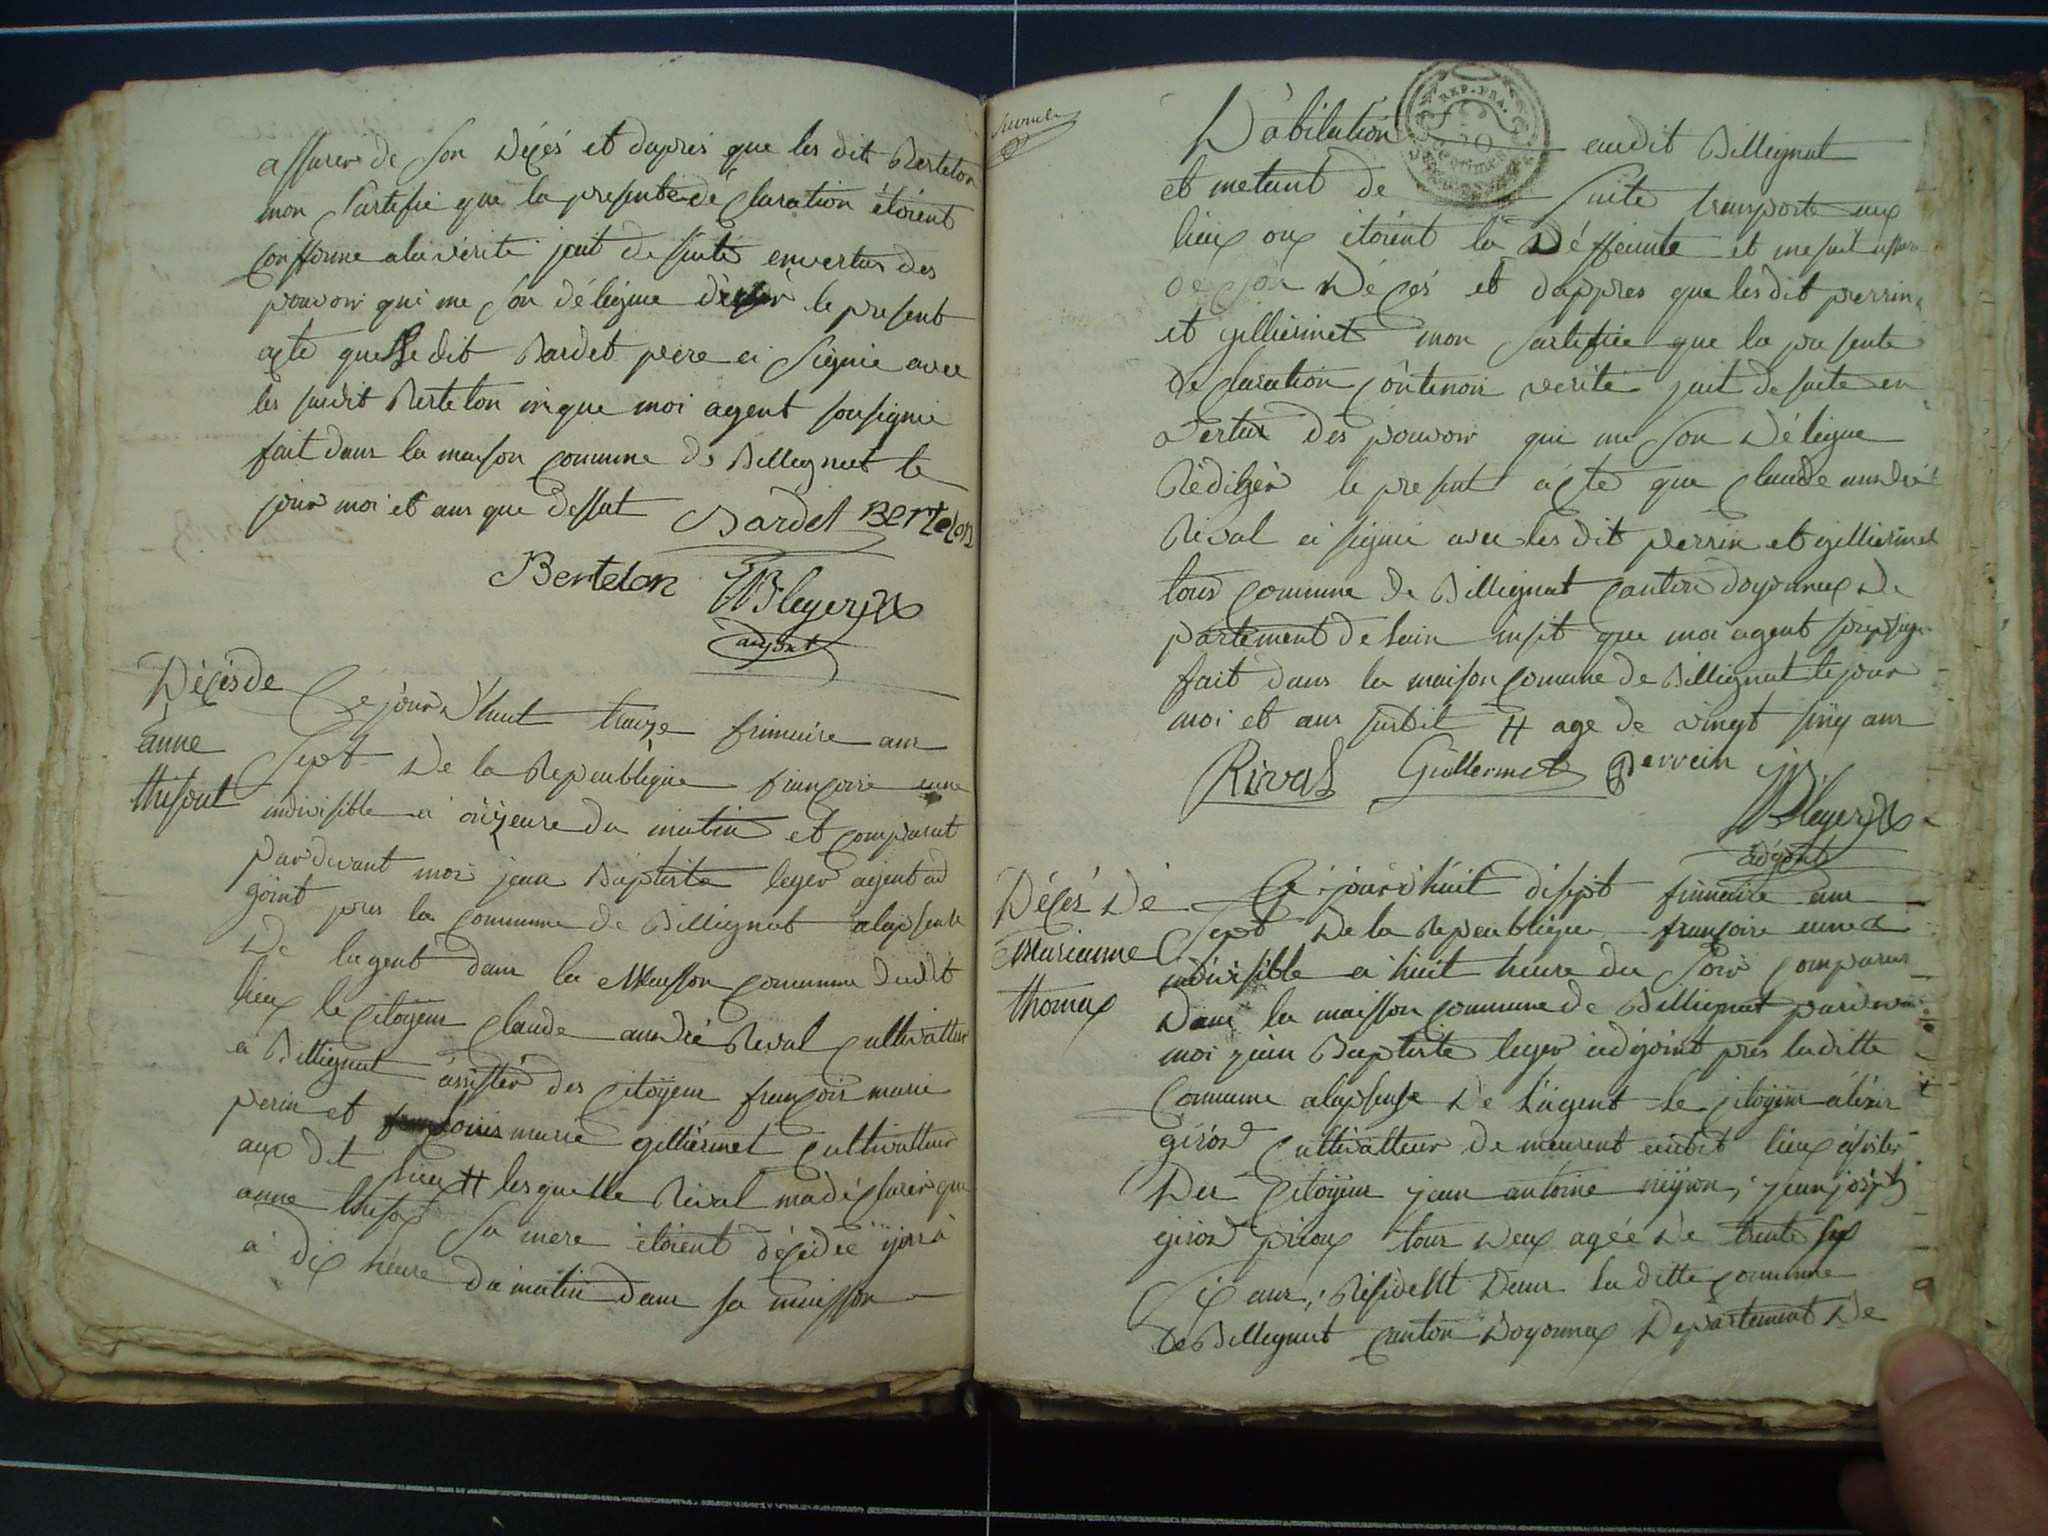 assurer de son déçés et dapres que les dit Berteton
mon Sartifie que la presente déClaration étoient
Conforme ala vérité jait de suite envertus des
pouvoir qui me son délégue le present
acte que le dit Bardet pere ei Signie avec
les surdit Berteton insique moi agent sousignie
fait dans la maison Comune de Billiegnat le
jour moi et ans que dessut Bardet Bertelon
Bertelon JBleger
adjoint
Déçés de
anne
thifout
Ce jour d'huit traize frimaire ans
Sept De la Republique françoise eune
indivisible a onzeure du matin et comparut
Pardevant moi jean Baptiste leger agent ad
goint pres la Commune de Billiegnat alapsence
De lagent dans la Maisson Commune dudit
lieux le Citoÿens Claude andré Rival Cultivatteur
a Billiegnat assister des Citoÿens françois marie
perin et louis marie gilliermet Cultivatteur
aux dit lieux # les quelle Rival ma déClarer que
anne thifox Sa mere étoient déçédée
a dix heure du matin dans sa maisson
D'abitation audit Billiegnat
et metant de Suite transporte aux
lieux oux étoient la Déffeunte et me suit assure
de son Déçés et dappres que les dit perrin
et gilliermet mon Sartifiee que la presente
deClaration Contenoir verité jait de suite en
vertus des pouvoir qui me son Délégue
Rédiger le present acte que Claude andre
Rival ei signie avec les dit perrin et gilliermet
tous Commune de Billiegnat Canton doyonnax De
partement de lain insit que moi agent
fait dans la maison Comune de Billiegnat le jour
moi et ans surdit # age de vingt sinq ans
Rival Guillermet Perrein
JBleger
adjoint
Déçés De
Marianne
thomax
Ce jour d'huit disept frimaire ans
Sept De la Republique françoise eune et
indivisible a huit heure du Soir Comparus
Dans la maisson Commune de Billiegnat pardevan
moi jean Baptiste leger adgoint pres laditte
Commune alapsense De l'agent le Citoÿens
girod Cultivatteur de meurent audit lieux asister
Des Citoÿens jean antoine niÿron, jean joseph
girod prioux tous Deux agée De trente six
Six ans, Résidelit Dans laditte Commune
de Billiegnat Canton Doyonnax Departement De